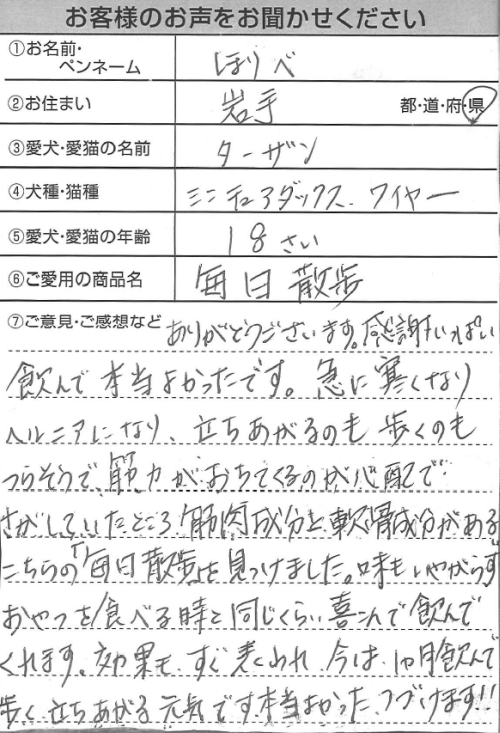 お客様のお声をお聞かせください
①お名前・
ペンネーム
ほりべ
②お住まい
岩手
都・道・府・県
③愛犬・愛猫の名前
ターザン
④犬種・猫種
ミニチュアダックス.ワイヤー
⑤愛犬・愛猫の年齢
18さい
⑥ご愛用の商品名
毎日散歩
⑦ご意見・ご感想など
ありがとうございます。感謝いっぱい
飲んで本当よかったです。急に寒くなり
ヘルニアになり、立ちあがるのも歩くのも
つらそうで、筋力がおちてくるのが心配で
さがしていたところ筋肉成分と軟骨成分がある
こちらの「毎日散歩」を見つけました。味もいやがらず
おやつを食べる時と同じくらい喜こんで飲んで
くれます。効果も、すぐ表われ今は、1ヵ月飲んで
歩く立ちあがる元気です本当よかった、つづけます!!